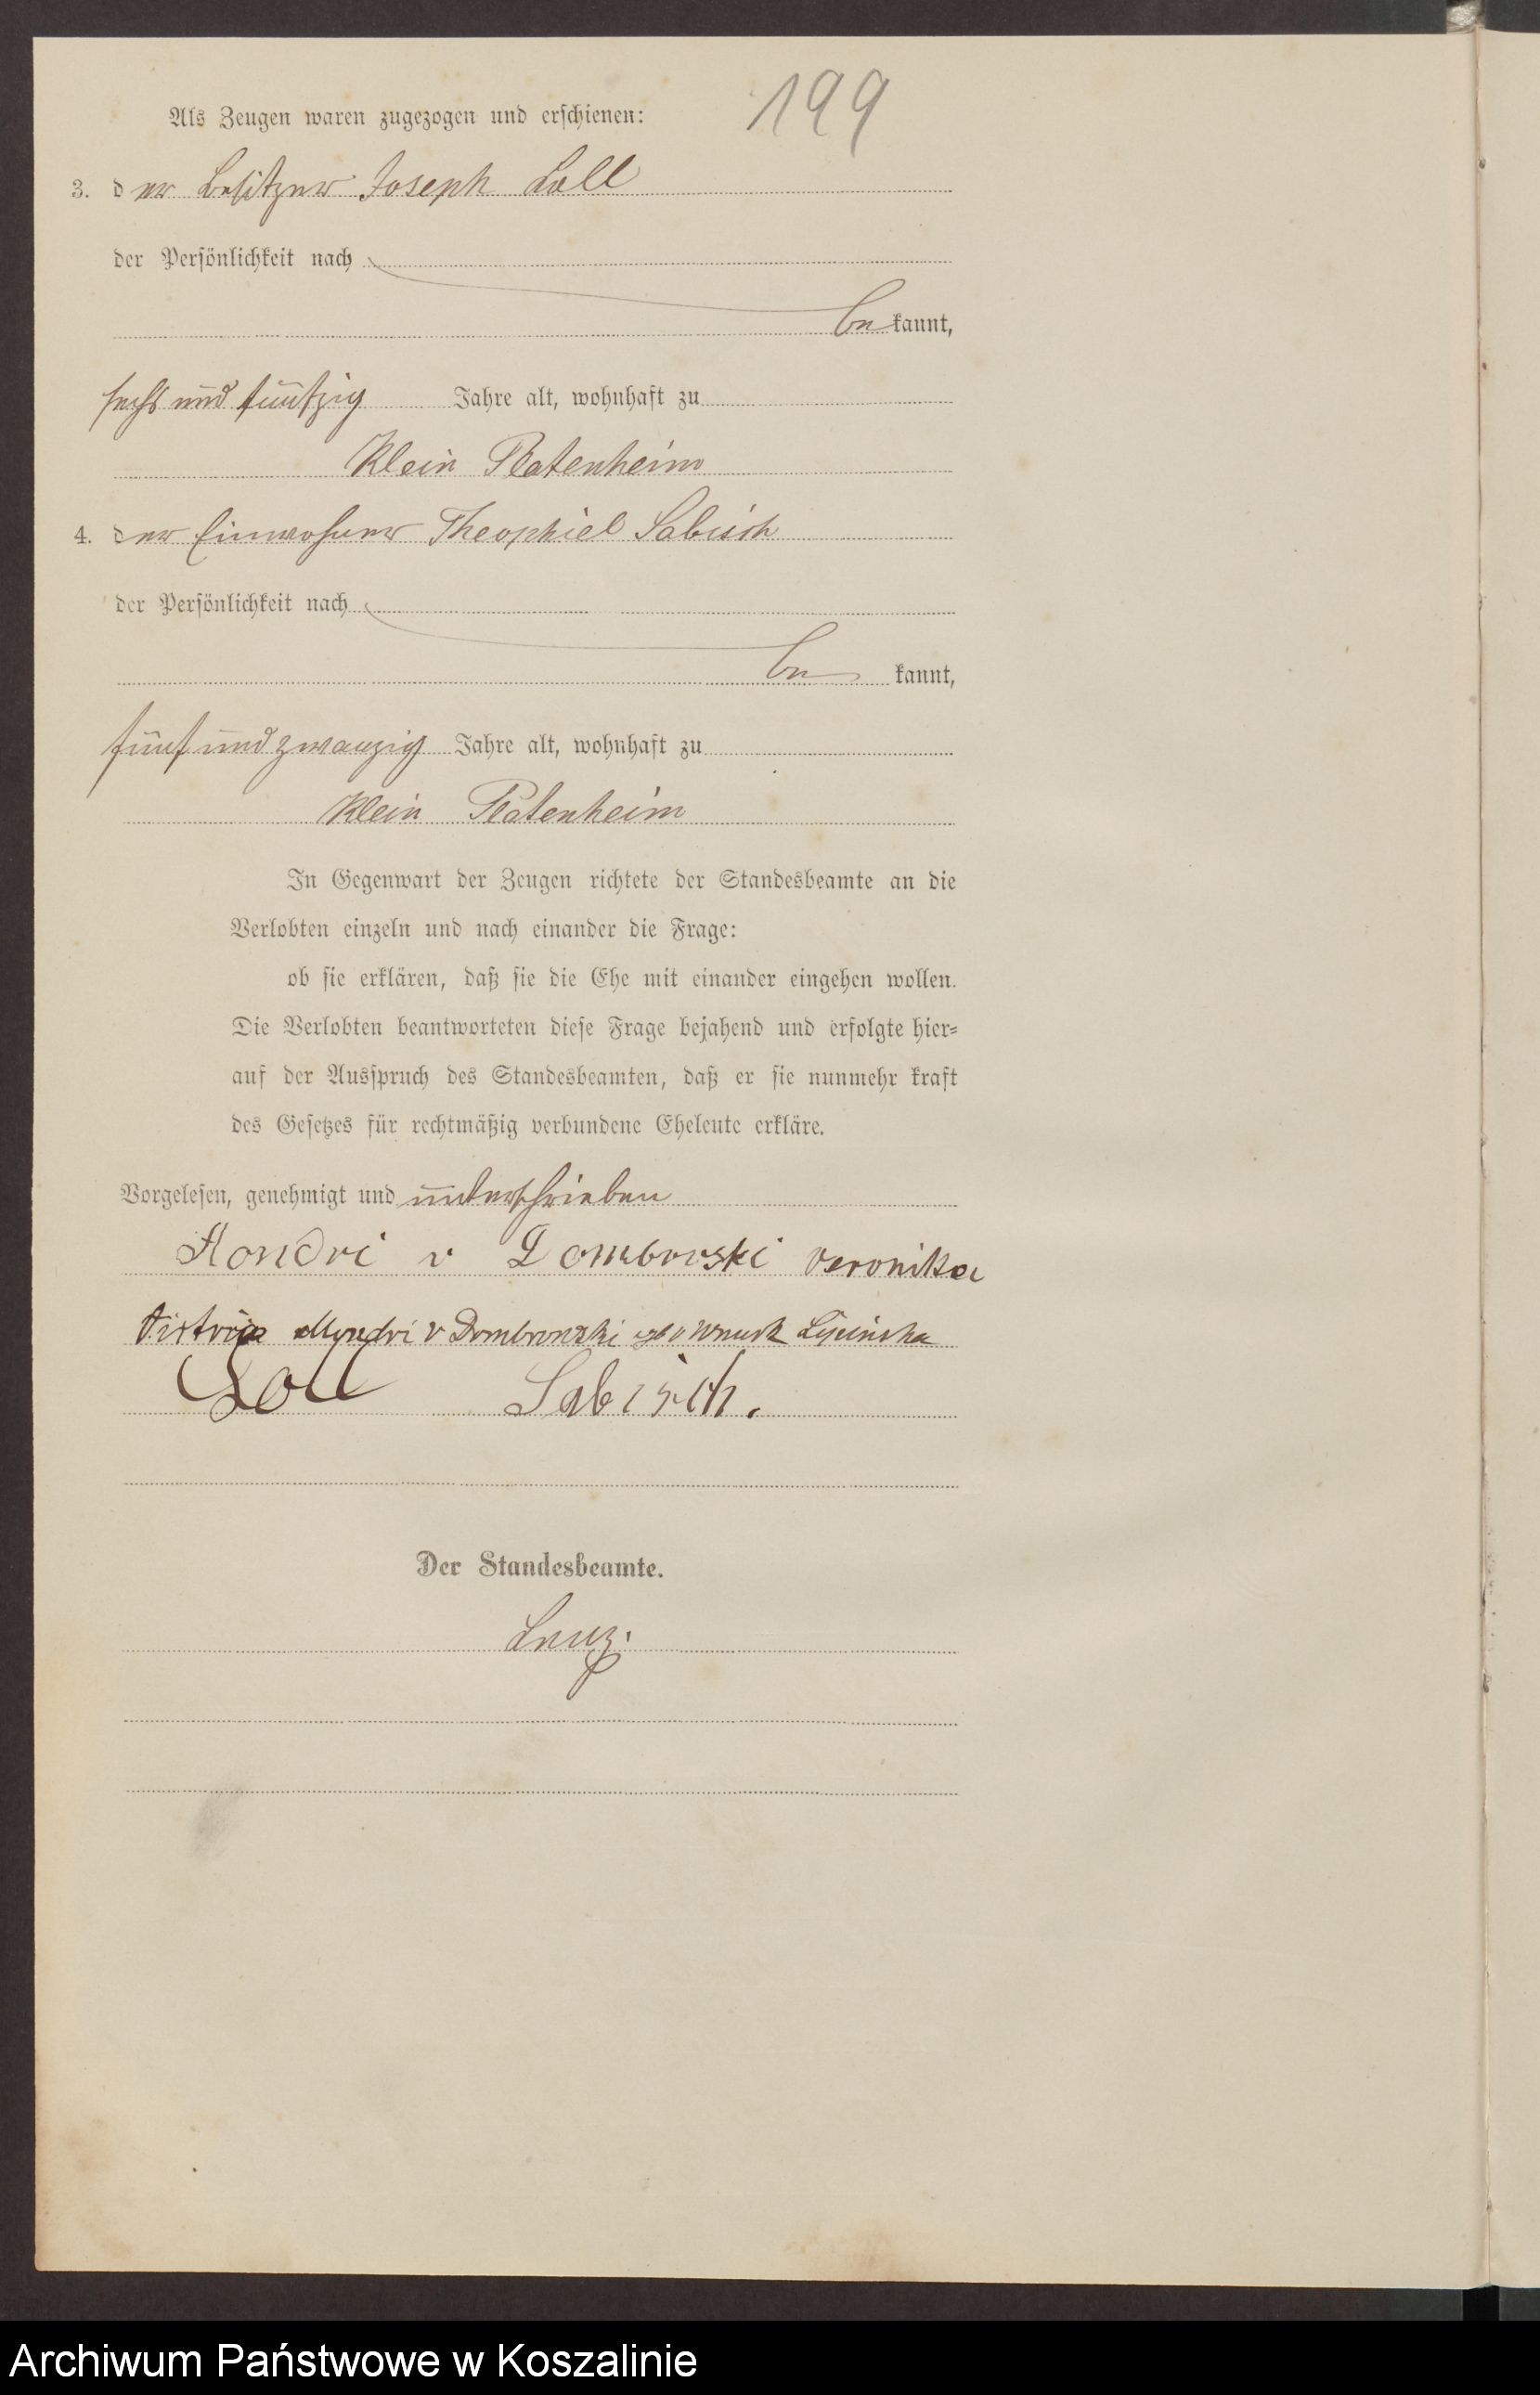 199
Als Zeugen waren zugezogen und erschienen:
3. der Besitzer Joseph Loll
der Persönlichkeit nach
bekannt,
sechs und fünfzig Jahre alt, wohnhaft zu
Klein Platenheim
4. der Einwohner Theophiel Sabisch
der Persönlichkeit nach
be kannt,
fünf und zwanzig Jahre alt, wohnhaft zu
Klein Platenheim
In Gegenwart der Zeugen richtete der Standesbeamte an die
Verlobten einzeln und nach einander die Frage:
ob sie erklären, daß sie die Ehe mit einander eingehen wollen.
Die Verlobten beantworteten diese Frage bejahend und erfolgte hier=
auf der Ausspruch des Standesbeamten, daß er sie nunmehr kraft
des Gesetzes für rechtmäßig verbundene Eheleute erkläre.
Vorgelesen, genehmigt und unterschrieben
v Dombrowski Veronika
v Dombrowski v Wnuck
Loll Sabisch.
Der Standesbeamte.
Archiwum Państwowe w Koszalinie